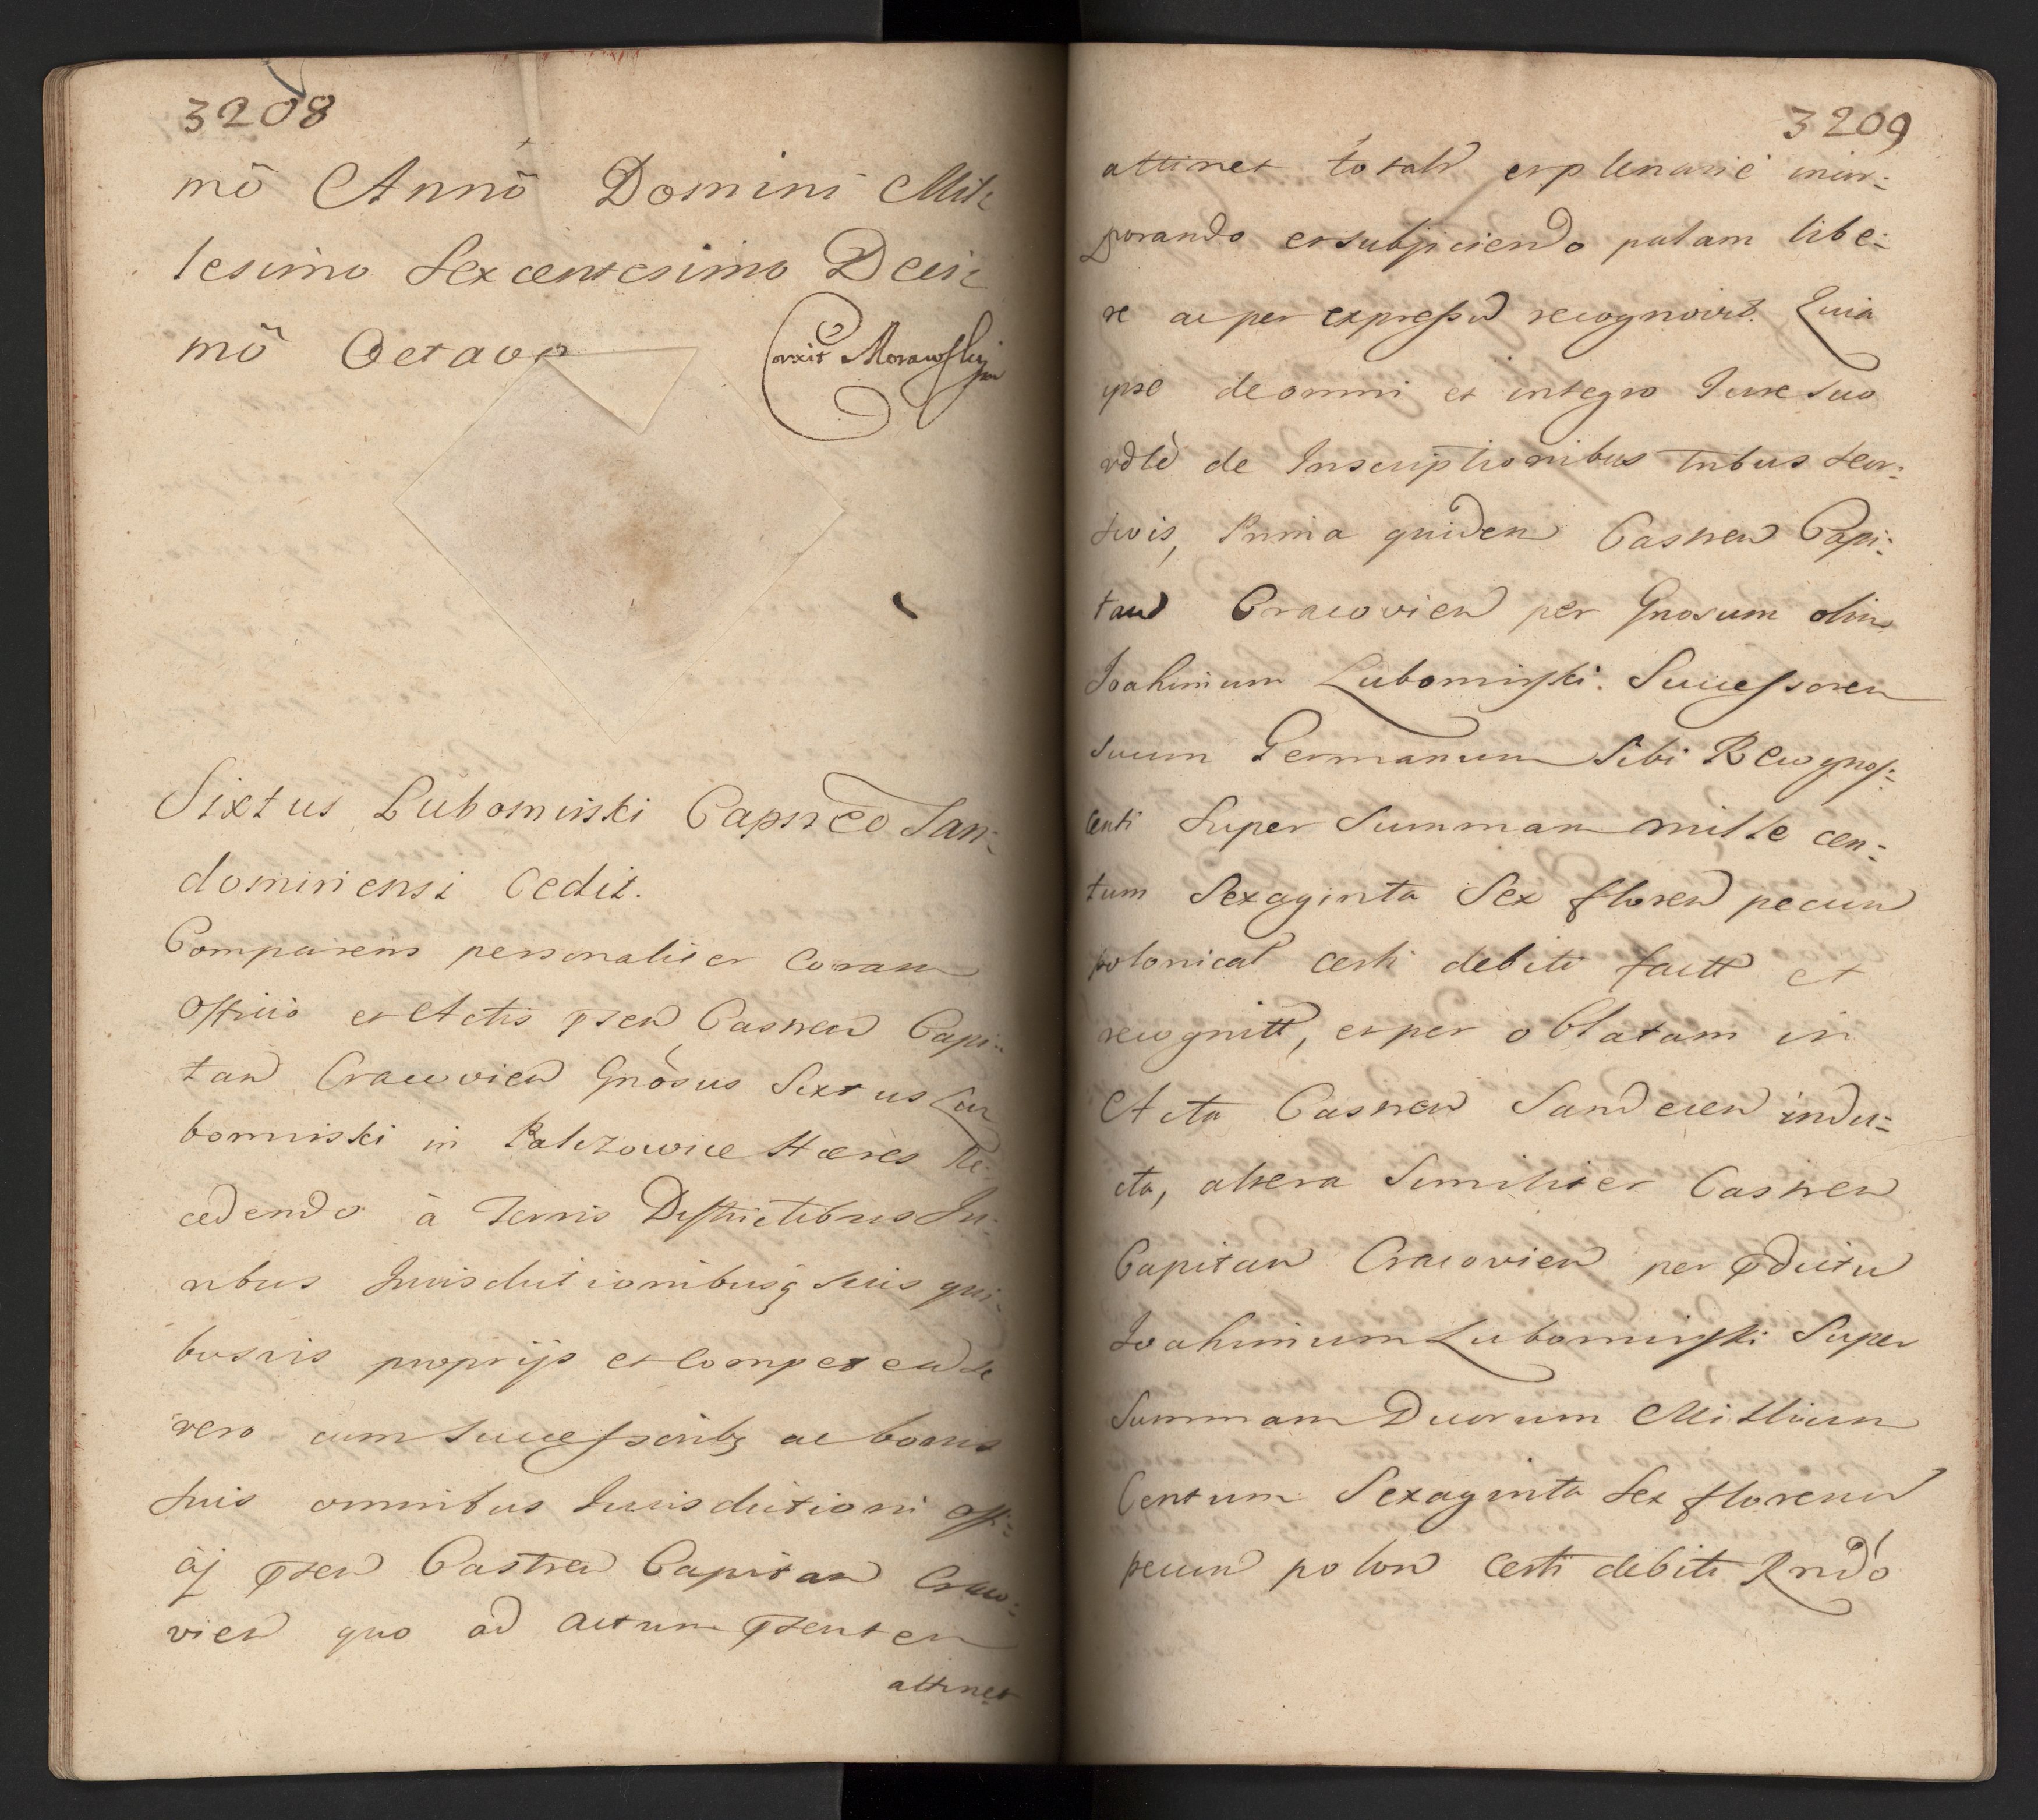 3208
mõ Annõ Domini Mil
lesimo Sexcentesimo Deci
mõ Octavo
Corrxit Morawskij
Sixtus Lubomirski Capneo San:
domiriensi Cedit.
Comparens personaliter Coram
Officio et Actis pñsen Castren Capi:
tan Cracovien Gnösus Sixtus Lu
bomirski in Ralczowice Hæres Re:
cedendo à Terris Districtibus Ju:
ribus Jurisdictionibusq suis qui:
busvis proprijs et Competen Se
vero cum Successoribq ac bonis
suis omnibus Jurisdictioni Offi:
cij pñsen Castren Capitan Craco:
vien quo ad actum pñsentem
attinet
3209
attinet totalr et plenarie incor:
porando et subjiciendo palam libe:
re ac per expressu recognovit. Quia
ipse de omni et integro Jure suo
vdlt de Inscriptionibus tribus seor:
sivis, Prima quidem Castren Capi:
tan Cracovien per Gnosum olim
Joahimum Lubomirski Successorem
suum Germanum Sibi Recognos:
centi Super Summam mille cen:
tum Sexaginta Sex floren pecun
polonical certi debiti factt et
recognitt, et per oblatam in
Acta Castren Sandecen indu:
cta, altera Similiter Castren
Capitan Cracovien per pdictu
Joahimum Lubomirski Super
Summam Duorum Millium
Centum Sexaginta Sex florenor
pecun polon certi debiti Rndó